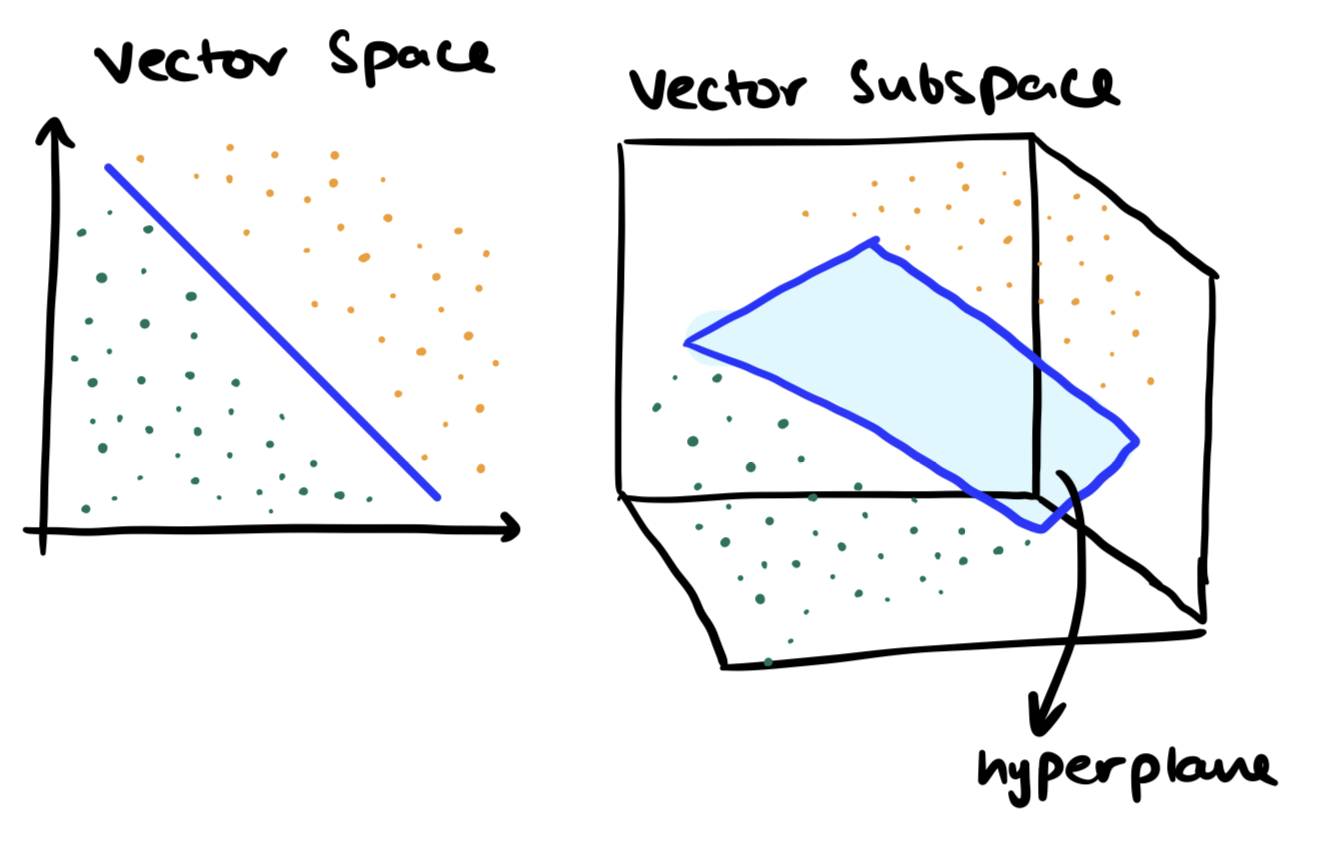 Vector Space
Vector Subspace
hyperplane